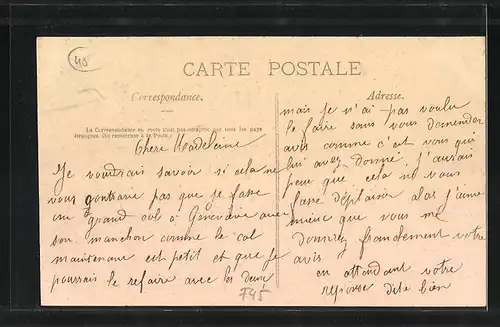 40
CARTE POSTALE
Correspondance.
Adresse.
La Correspondance au recto n'est pas acceptée par tous les pays
étrangers. (Se renseigner à la Poste.)
Chere Madeleine
Je voudrais savoir si cela ne
vous contrarie pas que je fasse
un grand col à Geneviève avec
son manchon comme le col
maintenant est petit et que je
pourrais le refaire avec les deux
mais je n'ai pas voulu
le faire sans vous demender
avis comme c'est vous qui
lui avez donné. J'aurais
peur que cela ne vous
fasse déplaisir alor j'aime
mieux que vous me
donniez frandement votre
avis
en attendant votre
reponse dite bien
745